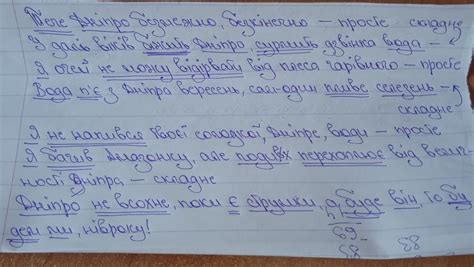 Тече Дніпро безмежно, безкінечно — просте складне
З далі віків біжить Дніпро, сурмить дзвінка вода —
Я очей не можу відірвати від плеса чарівного — просте
Вода п'є з Дніпра вересень, сам-один пливе селезень —
складне
Я не напився твоєї солодкої, Дніпре, води — просте
Я бачив Амазонку, але подих перехоплює від велич-
ності Дніпра — складне
Дніпро не всохне, поки є струмки, а буде він, то бу
дем ми, нівроку!
69
83
83